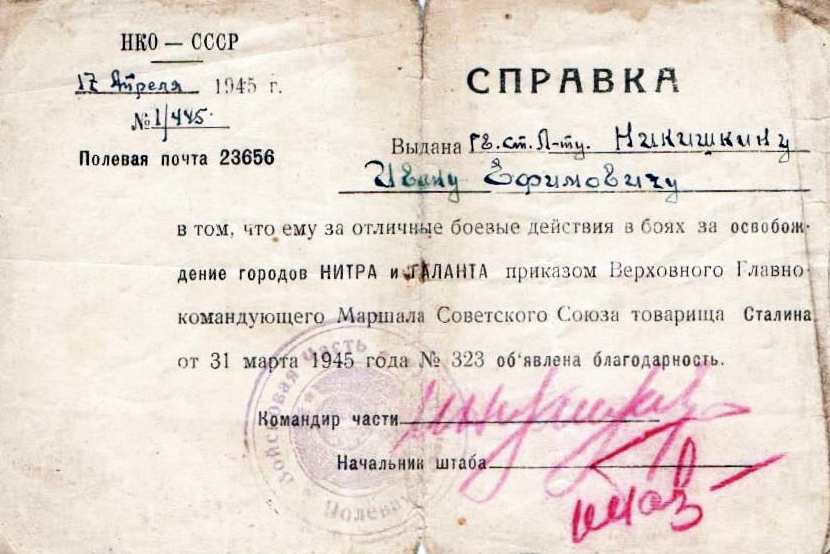 НКО — СССР
17 Апреля 1945 г.
№ 1/445.
Полевая почта 23656
СПРАВКА
Выдана гв. ст. Л-ту. Никишкину
Ивану Ефимовичу
в том, что ему за отличные боевые действия в боях за освобож-
дение городов НИТРА и ГАЛАНТА приказом Верховного Главно-
командующего Маршала Советского Союза товарища Сталина
от 31 марта 1945 года № 323 об'явлена благодарность.
Командир части
Начальник штаба
Войсковая Часть
Полевая